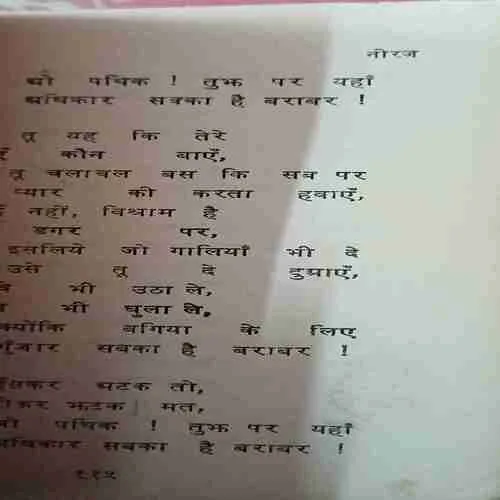 नीरज
ओ पथिक ! तुझ पर यहाँ
अधिकार सबका है बराबर !
तू यह कि तेरे
कौन बाएँ,
तू चलाचल बस कि सब पर
प्यार की करता हवाएँ,
नहीं, विश्राम है
डगर पर,
इसलिये जो गालियाँ भी दे
उसे तू दे दुआएँ,
भी उठा ले,
भी घुला ले,
क्योंकि बगिया के लिए
गुंजार सबका है बराबर !
भटक तो,
झटक मत,
ओ पथिक ! तुझ पर यहाँ
अधिकार सबका है बराबर !
११५